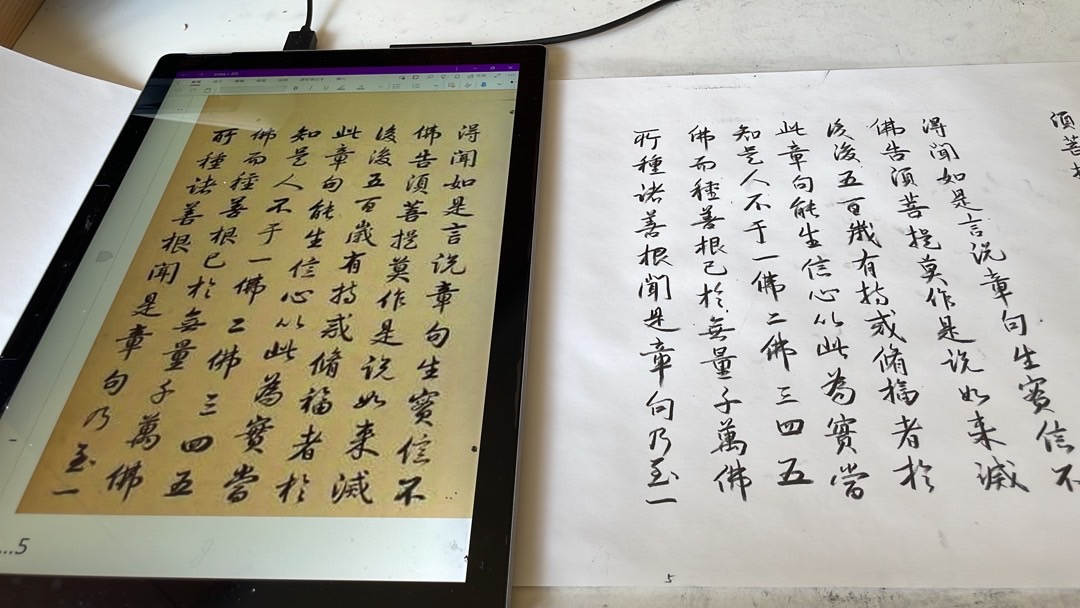 得聞如是言說章句生實信不
佛告須菩提莫作是說如来滅
後後五百歲有持戒脩福者於
此章句能生信心以此為實當
知是人不于一佛二佛三四五
佛而種善根已於無量千萬佛
所種諸善根聞是章句乃至一
...5
須菩
得聞如是言說章句生實信不
佛告須菩提莫作是說如来滅
後後五百歲有持戒脩福者於
此章句能生信心以此為實當
知是人不于一佛二佛三四五
佛而種善根已於無量千萬佛
所種諸善根聞是章句乃至一
5